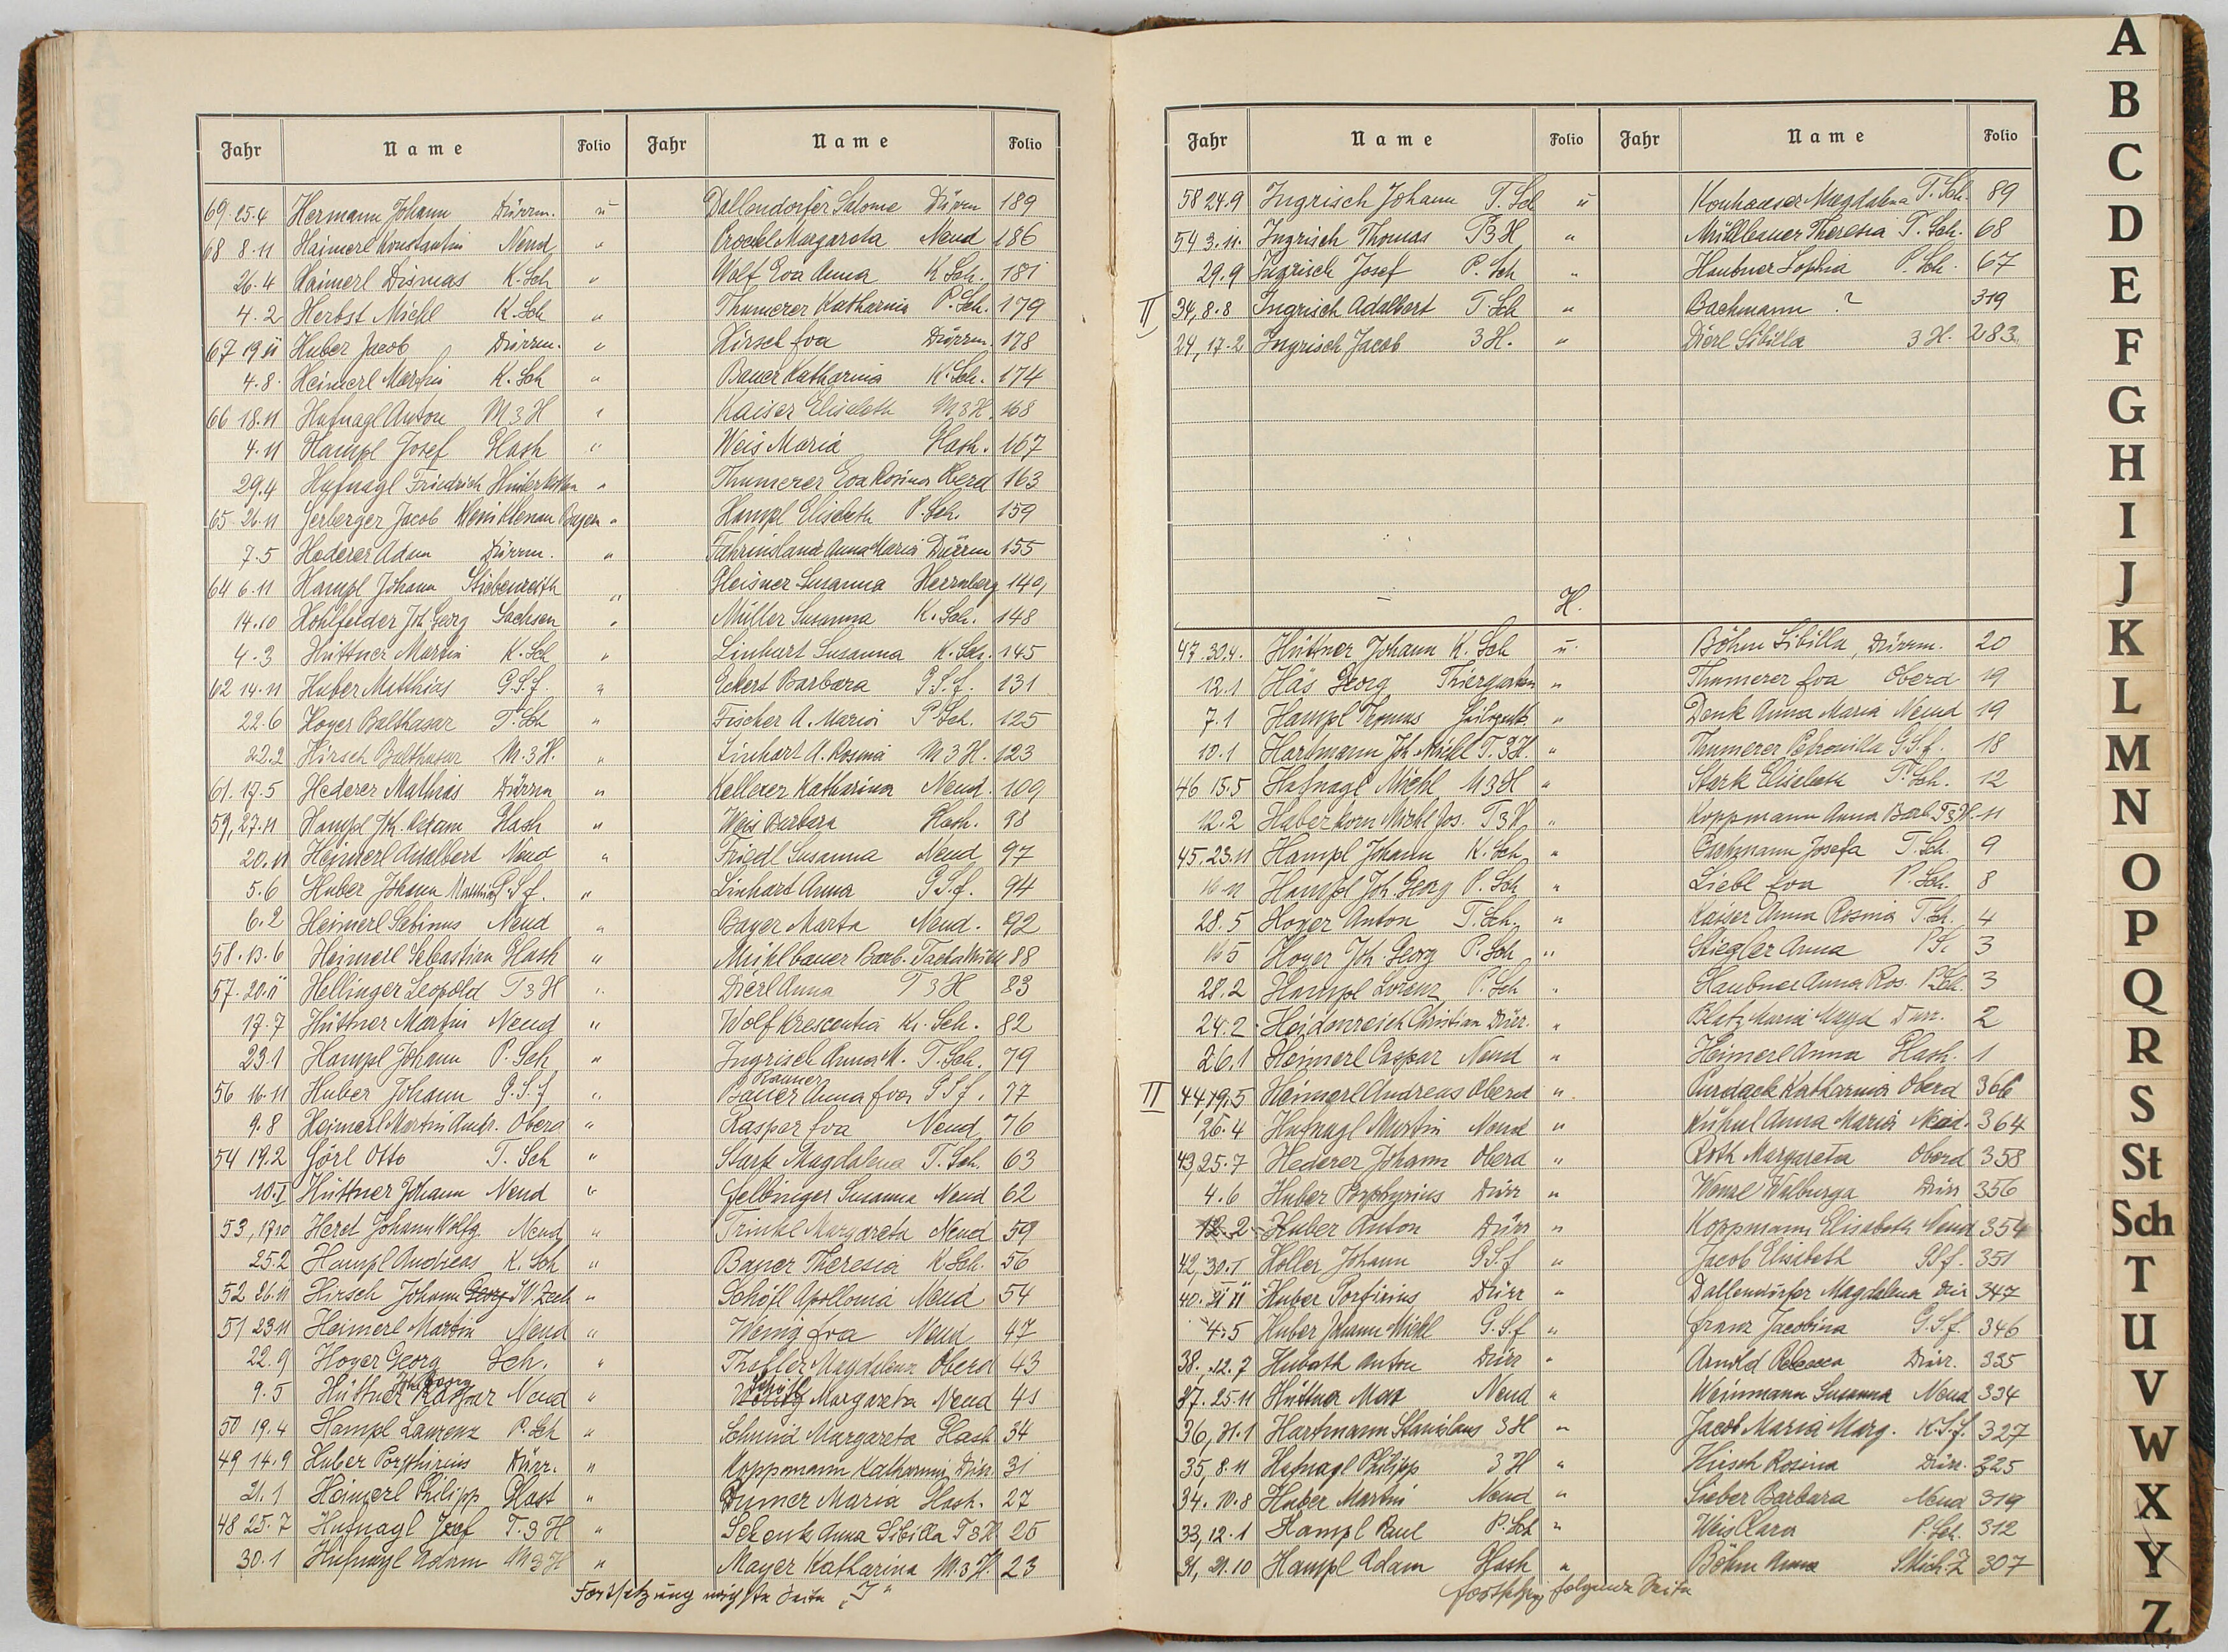 Jahr Name Folio Jahr Name Folio
69 25.4 Hermann Johann Dürrm. u Dallendorfer Salome Dürrm 189
68 8.11 Haimerl Konstantin Neud " Margareta Neud 186
26.4 Haimerl Dismas K.Sch " Wolf Eva Anna K Sch. 181
4.2 Herbst Michl K.Sch " Thumerer Katharina P.Sch. 179
67 19 11 Huber Jacob Dürrm. " Hirsch Eva Dürrm. 178
4.8. Heimerl Martin K.Sch " Bauer Katharina K.Sch. 174
66 18.11 Hufnagl Anton M 3 H " Kaiser Elisabeth M 3 H. 168
4.11 Hampl Josef Glash " Weis Maria Glash. 167
29.4 Hufnagl Friedrich " Thumerer Eva Rosina Oberd 163
65 26.11 Jacob Bayern " Hampl Elisabeth P.Sch. 159
7.5 Hederer Adam Dürrm. " Fahrnisland Anna Maria Dürrm 155
64 6.11 Hampl Johann Stiebenreith " Gleisner Susanna Herrnberg 149,
14.10 Hohlfelder Joh. Georg Sachsen " Müller Susanna K.Sch. 148
4.3 Hüttner Martin K.Sch " Linhart Susanna K.Sch. 145
62 14.11 Huber Matthias G.S.f. " Eckert Barbara G.S.f. 131
22.6 Hoyer Balthasar T.Sch " Fischer A. Maria P Sch. 125
22.2 Hirsch Balthasar M.3 H. " Linhart A. Rosina M 3 H. 123
61. 17.5 Hederer Mathias Dürrm " Kellerer Katharina Neud. 109
59, 27.11 Hampl Joh. Adam Glash " Weis Barbara Glash. 98
20.11 Heimerl Adalbert Neud " Friedl Susanna Neud 97
5.6 Huber Johann Matthias G.S.f. " Linhart Anna G S.f. 94
6.2 Heimerl Sabinus Neud " Bayer Marta Neud. 92
58. 13.6 Heimerl Sebastian Glash " Mühlbauer Barb. 88
57. 20.11 Hellinger Leopold T 3 H " Dierl Anna T 3 H 83
17.7 Hüttner Martin Neud " Wolf Krescentia K. Sch. 82
23.1 Hampl Johann P.Sch " Ingrisch Anna M. T.Sch. 79
Rainer
56 16.11 Huber Johann G.S.f " Bauer Anna Eva G S f. 77
9.8 Heimerl Martin Andr. Oberd " Kaspar Eva Neud 76
54 19.2 Görl Otto T. Sch " Stark Magdalena T.Sch. 63
10.I Hüttner Johann Neud " Felbinger Susanna Neud 62
53, 17.10 Heret Johann Wolfg. Neud " Trinkl Margareta Neud 59
25.2 Hampl Andreas K. Sch " Bayer Theresia K Sch. 56
52 26.11 Hirsch Johann Georg W. Zech " Schöfl Apollonia Neud 54
51 23.11 Heimerl Martin Neud " Wenig Eva Neud 47
22.9 Hoyer Georg Sch. " Magdalena Oberd 43
Joh Georg
9.5 Hüttner Kaspar Neud " Margareta Neud 41
50 19.4 Hampl Laurenz P.Sch " Schmid Margareta Glash 34
49 14.9 Huber Porphirius Dürr. " Koppmann Katharina Dürr. 31
21.1 Heimerl Philipp Glast " Dumer Maria Glash. 27
48 25.7 Hufnagl Josef T.3 H " Schenk Anna Sibilla T 3 H. 25
30.1 Hufnagl Adam M 3 H " Mayer Katharina M.3 H. 23
Fortsetzung nächste Seite „J"
Jahr Name Folio Jahr Name Folio
58 24.9 Ingrisch Johann T.Sch u Konhäuser Magdalena T.Sch. 89
54 3.11. Ingrisch Thomas T3 H " Mühlbauer Theresia T.Sch. 68
29.9 Ingrisch Josef P.Sch " Haubner Sophia P.Sch. 67
II 34, 8.8 Ingrisch Adalbert T.Sch " Bachmann ? 319
24, 17.2 Ingrisch Jacob 3 H. " Dierl Sibilla 3 H. 283.
H.
47. 30.4. Hüttner Johann K.Sch u. Böhm Sibilla, Dürrm. 20
12.1 Häs Georg Thiergarten " Thumerer Eva Oberd 19
7.1 Hampl Thomas " Denk Anna Maria Neud 19
10.1 Hartmann Joh. Michl T.3 H. " Thumerer Petronilla G.S.f. 18
46 15.5 Hufnagl Michl M 3 H " Stark Elisabeth T.Sch. 12
12.2 Haberkorn Michl Jos. T 3 H " Koppmann Anna Barb. T 3 H. 11
45, 23.11 Hampl Johann K.Sch " Josefa T.Sch. 9
16.11 Hampl Joh. Georg P.Sch " Liebl Eva P.Sch. 8
28.5 Hoyer Anton T.Sch. " Kaiser Anna Rosina T.Sch. 4
16 5 Hoyer Joh. Georg P.Sch " Stiegler Anna 3
28.2 Hampl Lorenz P.Sch " Haubner Anna Ros. P.Sch. 3
24.2 Heidenreich Christian Dürr. " Maria Magd Dürr. 2
26.1 Heimerl Caspar Neud " Heimerl Anna Glash. 1
II 44 19.5 Heimerl Andreas Oberd " Purdack Katharina Oberd 366
26.4 Hufnagl Martin Neud " Anna Maria Neud. 364
43, 25.7 Hederer Johann Oberd " Roth Margareta Oberd 358
4.6 Huber Porphyrius Dürr " Wenzl Walburga Dürr 356
12.2 Huber Anton Dürr " Koppmann Elisabeth Neud 354
42, 30.I Holler Johann G.S.f " Jacob Elisabeth G S f. 351
40. 21 11 Huber Porfirius Dürr " Dallendörfer Magdalena Dür 347
4.5 Huber Johann Michl G.S.f " Franz Jacobina G.S.f. 346
38., 12.7 Hubath Anton Dürr " Arnold Rebecca Dürr. 335
37. 25.11 Hüttner Max Neud " Weinmann Susanna Neud 334
36, 31.1 Hartmann Stanislaus 3 H " Jacob Maria Marg. K.S.f. 327
35, 8.11 Hufnagl Philipp 3 H " Hirsch Rosina Dürr. 325
34. 10.8 Huber Martin Neud " Lieber Barbara Neud 319
33, 12.1 Hampl Paul P.Sch " Weis Clara P.Sch. 312
31, 21.10 Hampl Adam Glash " Böhm Anna 307
Fortsetzg folgende Seite
A
B
C
D
E
F
G
H
I
J
K
L
M
N
O
P
Q
R
S
St
Sch
T
U
V
W
X
Y
Z